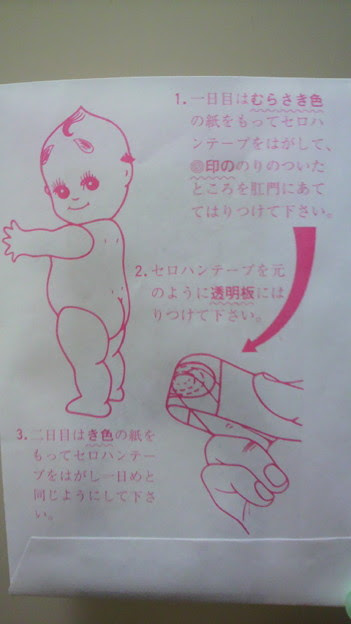 1. 一日目はむらさき色
の紙をもってセロハ
ンテープをはがして、
◎印ののりのついた
ところを肛門にあて
てはりつけて下さい。
2. セロハンテープを元
のように透明板には
りつけて下さい。
3. 二日目はき色の紙を
もってセロハンテー
プをはがし一日めと
同じようにして下さ
い。